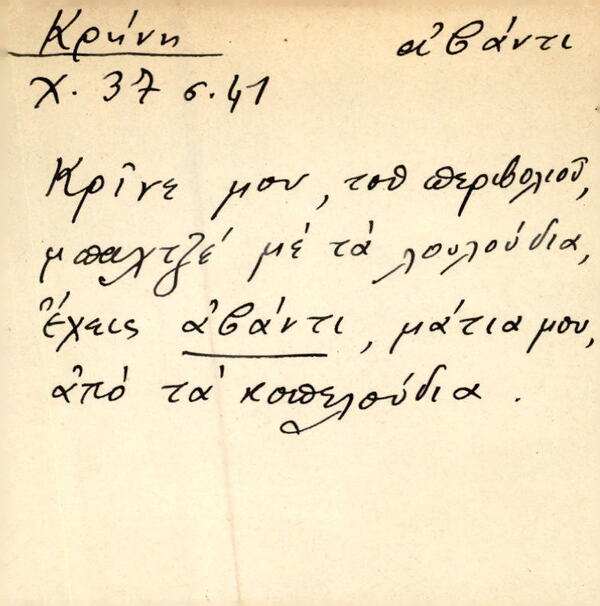 Κρήνη ἀβάντι
χ. 37 σ. 41
Κρῖνε μου, τοῦ περιβολιοῦ,
μπαχτζέ μέ τά λουλούδια,
ἔχεις ἀβάντι, μάτια μου,
ἀπό τά κοπελούδια.